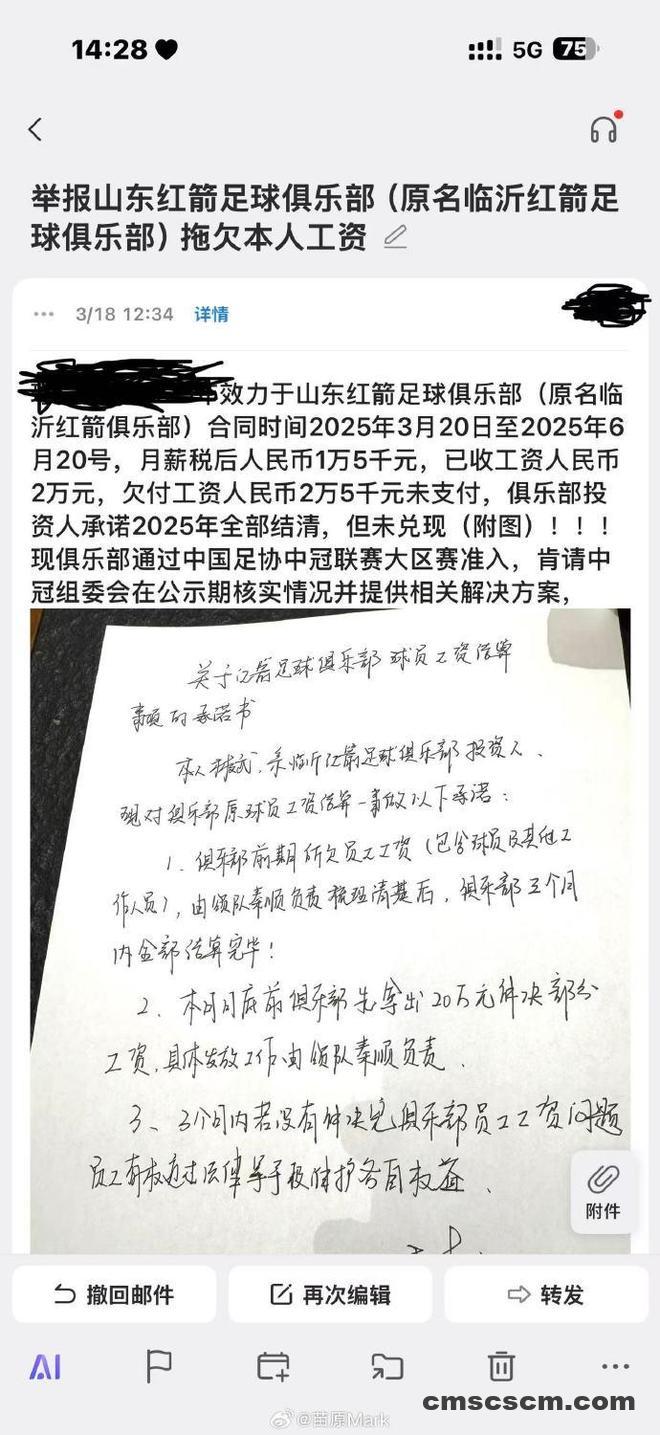 14:28
5G
75
举报山东红箭足球俱乐部（原名临沂红箭足
球俱乐部）拖欠本人工资
3/18 12:34 详情
效力于山东红箭足球俱乐部（原名临
沂红箭俱乐部）合同时间2025年3月20日至2025年6
月20号，月薪税后人民币1万5千元，已收工资人民币
2万元，欠付工资人民币2万5千元未支付，俱乐部投
资人承诺2025年全部结清，但未兑现（附图）！！！
现俱乐部通过中国足协中冠联赛大区赛准入，肯请中
冠组委会在公示期核实情况并提供相关解决方案，
关于红箭足球俱乐部球员工资结算
事项的承诺书
本人，系临沂红箭足球俱乐部投资人、
现对俱乐部原球员工资结算一事做以下承诺：
1、俱乐部前期所欠员工工资（包含球员及其他工
作人员），由领队秦顺负责梳理清楚后，俱乐部三个月
内全部结算完毕！
2、本月月底前俱乐部先拿出20万元解决部分
工资，具体发放工作由领队秦顺负责。
3、3个月内若没有解决完俱乐部员工工资问题
员工有权通过法律等手段维护各自权益、
附件
撤回邮件
再次编辑
转发
AI
cmscscm.com
@苗原Mark